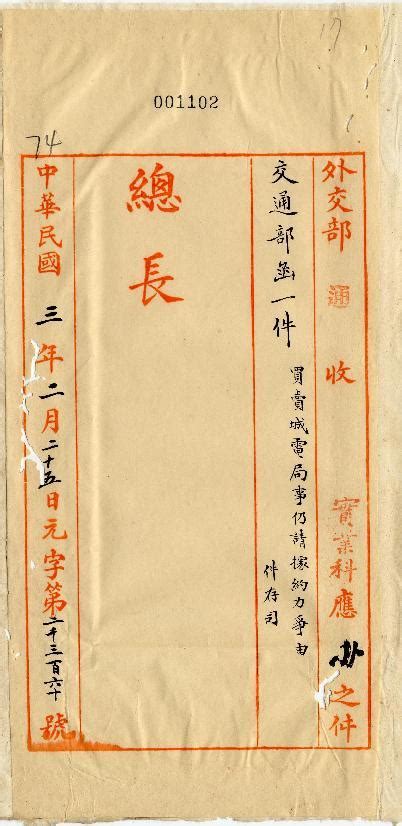 17
001102
74
外交部 通收 實業科應 卦 之件
交通部函一件
買賣城電局事仍請據約力爭由
件存司
總長
中華民國三年二月二十五日元字第二千三百六十號